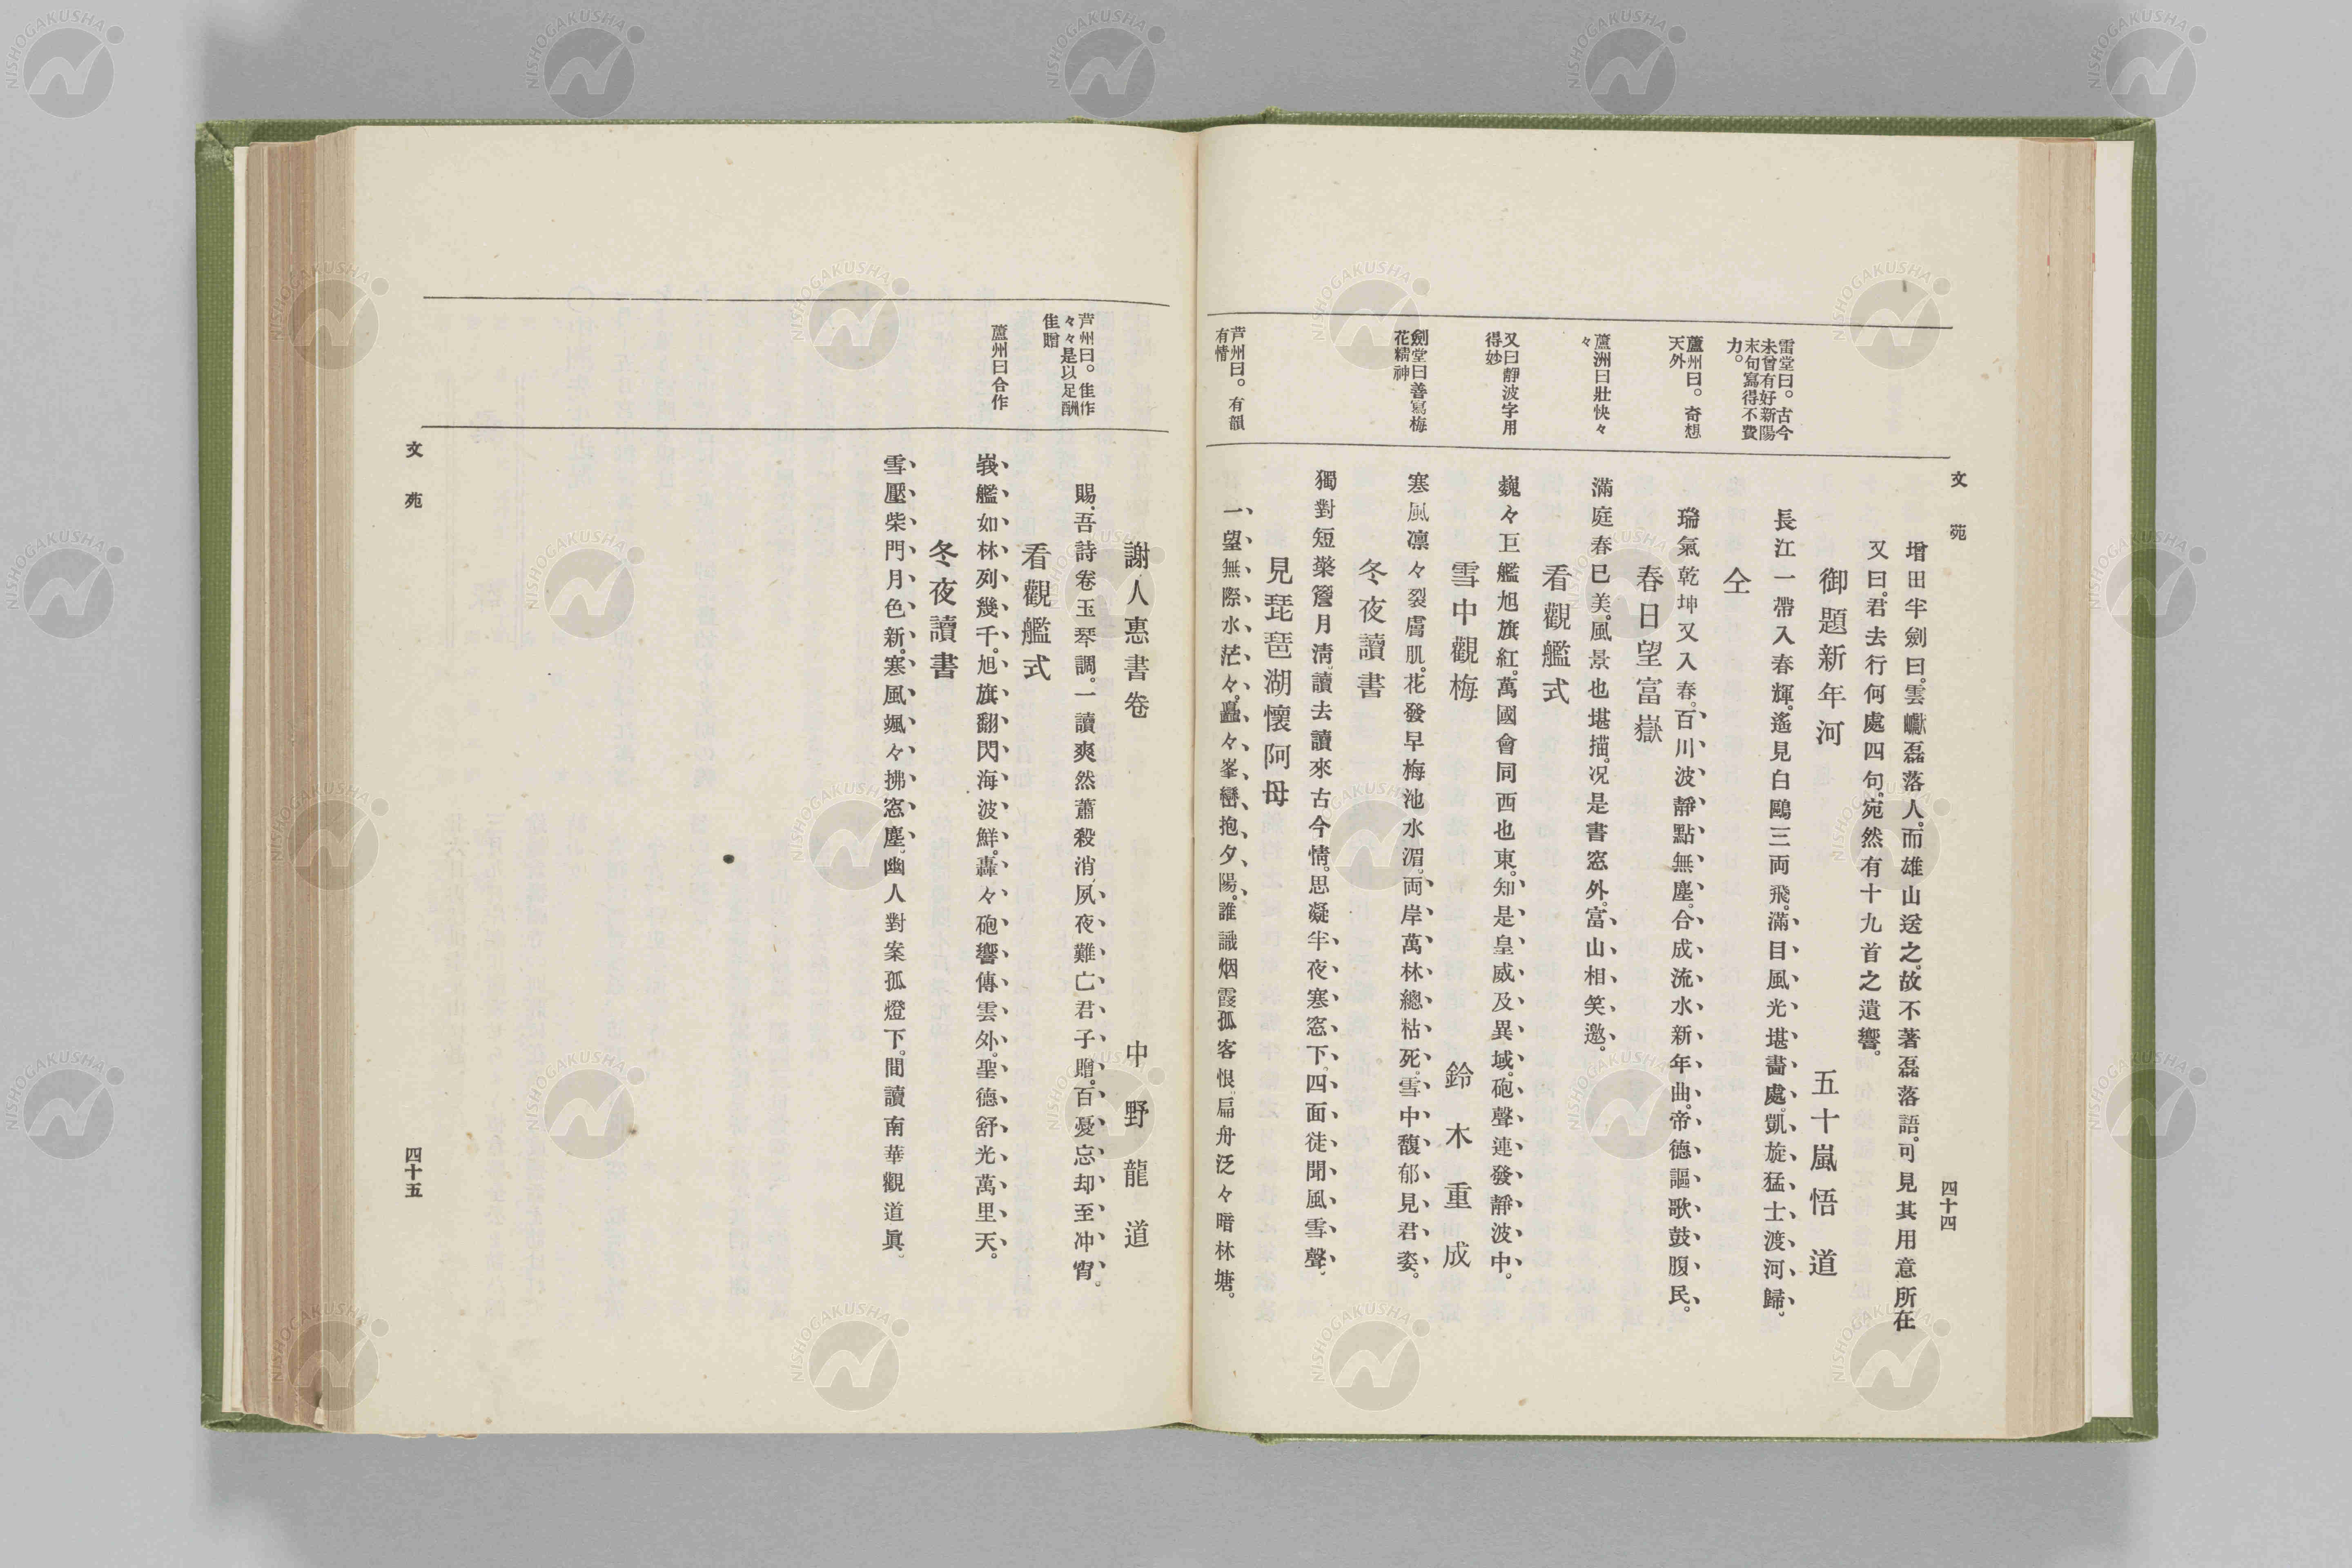 文苑
四十四
增田半劍曰。雲巘磊落人。而雄山送之。故不著磊落語。可見其用意所在
又曰。君去行何處四句。宛然有十九首之遺響。
御題新年河
五十嵐悟道
雷堂曰。古今
未曾有好新陽
末句寫得不費
力。
長江一帶入春輝。遙見白鷗三両飛。滿目風光堪畵處。凱旋猛士渡河歸。
仝
蘆州曰。奇想
天外
瑞氣乾坤又入春。百川波靜點無塵。合成流水新年曲。帝德謳歌鼓腹民。
春日望富嶽
蘆洲曰壯快々
々
滿庭春已美。風景也堪描。况是書窓外。富山相笑邀。
看觀艦式
又曰靜波字用
得妙
巍々巨艦旭旗紅。萬國會同西也東。知是皇威及異域。砲聲連發靜波中。
雪中觀梅
鈴木重成
劍堂曰善寫梅
花精神
寒風凛々裂膚肌。花發早梅池水湄。両岸萬林總枯死。雪中馥郁見君姿。
冬夜讀書
獨對短檠簷月淸。讀去讀來古今情。思凝半夜寒窓下。四面徒聞風雪聲。
見琵琶湖懷阿母
芦州曰。有韻
有情
一望無際水茫々。矗々峯巒抱夕陽。誰識烟霞孤客恨。扁舟泛々暗林塘。
謝人惠書卷
中野龍道
芦州曰。佳作
々々是以足酬
佳贈
賜吾詩卷玉琴調。一讀爽然蕭殺消。夙夜難亡君子贈。百憂忘却至冲霄。
看觀艦式
蘆州曰合作
峩艦如林列幾千。旭旗翻閃海波鮮。轟々砲響傳雲外。聖德舒光萬里天。
冬夜讀書
雪壓柴門月色新。寒風颯々拂窓塵。幽人對案孤燈下。間讀南華觀道眞。
文苑
四十五
NISHOGAKUSHA